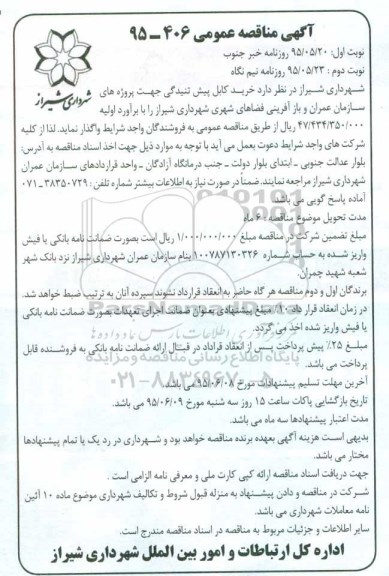 آگهی مناقصه عمومی ۴۰۶ ـ ۹۵
نوبت اول: ۹۵/۰۵/۲۰ روزنامه خبر جنوب
نوبت دوم : ۹۵/۰۵/۲۳ روزنامه نیم نگاه
شهرداری شیراز
شهرداری شیراز در نظر دارد خرید کابل پیش تنیدگی جهت پروژه های
سازمان عمران و باز آفرینی فضاهای شهری شهرداری شیراز را با برآورد اولیه
۴۷/۴۳۴/۳۵۰/۰۰۰ ریال از طریق مناقصه عمومی به فروشندگان واجد شرایط واگذار نماید. لذا از کلیه
شرکت های واجد شرایط دعوت بعمل می آید با توجه به موارد ذیل جهت اخذ اسناد مناقصه به آدرس:
بلوار عدالت جنوبی ـ ابتدای بلوار دولت ـ جنب درمانگاه آزادگان ـ واحد قراردادهای سازمان عمران
شهرداری شیراز مراجعه نمایند. ضمناً در صورت نیاز به اطلاعات بیشتر شماره تلفن : ۳۸۳۵۰۷۲۹ـ۰۷۱
آماده پاسخ گویی می باشد.
مدت تحویل موضوع مناقصه : ۶ ماه
مبلغ تضمین شرکت در مناقصه مبلغ ۱/۰۰۰/۰۰۰/۰۰۰ ریال است بصورت ضمانت نامه بانکی یا فیش
واریز شده به حساب شماره ۱۰۰۷۸۷۱۳۰۳۲۶ بنام سازمان عمران شهرداری شیراز نزد بانک شهر
شعبه شهید چمران.
برندگان اول و دوم مناقصه هر گاه حاضر به انعقاد قرارداد نشوند سپرده آنان به ترتیب ضبط خواهد شد.
در زمان انعقاد قرار داد ۱۰٪ مبلغ پیشنهادی بعنوان ضمانت اجرای تعهدات بصورت ضمانت نامه بانکی
یا فیش واریز شده اخذ می گردد.
مبلغ ۲۵٪ پیش پرداخت پس از انعقاد قراداد در قبال ارائه ضمانت نامه بانکی به فروشنده قابل
پرداخت می باشد.
پایگاه اطلاع رسانی مناقصه و مزایده
۰۲۱-۸۸۳۴۹۶۷۰-۵
آخرین مهلت تسلیم پیشنهادات مورخ ۹۵/۰۶/۰۸ می باشد.
تاریخ بازگشایی پاکات ساعت ۱۵ روز سه شنبه مورخ ۹۵/۰۶/۰۹ می باشد.
مدت اعتبار پیشنهادها سه ماه می باشد.
بدیهی است هزینه آگهی بعهده برنده مناقصه خواهد بود و شهرداری در رد یک یا تمام پیشنهادها
مختار می باشد.
جهت دریافت اسناد مناقصه ارائه کپی کارت ملی و معرفی نامه الزامی است .
شرکت در مناقصه و دادن پیشنهاد به منزله قبول شروط و تکالیف شهرداری موضوع ماده ۱۰ آئین
نامه معاملات شهرداری می باشد.
سایر اطلاعات و جزئیات مربوط به مناقصه در اسناد مناقصه مندرج است.
اداره کل ارتباطات و امور بین الملل شهرداری شیراز